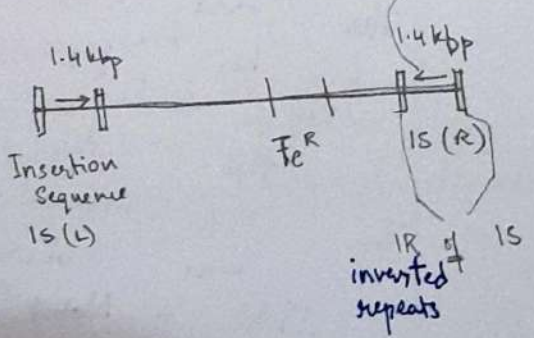 1.4 kbp
1.4 kbp
Insertion
Sequence
IS (L)
TeR
IS (R)
IR of IS
inverted
repeats